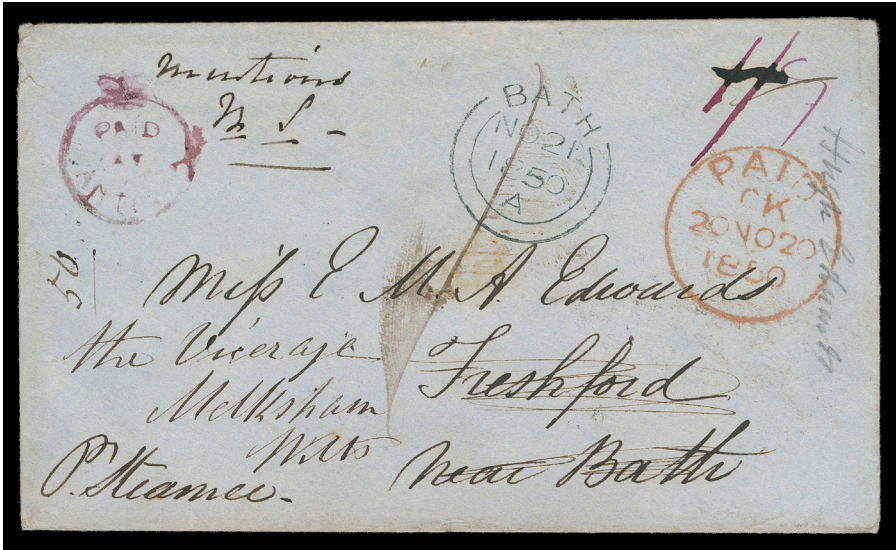 PAID
AT
mentions
M S -
BATH
NO 21
1850
A
PAID
CK
20 NO 20
1850
50
Miss E M. A. Edwards
the Vicerage
Melksham
Wilts
Freshford
near Bath
Pr. Steamer -